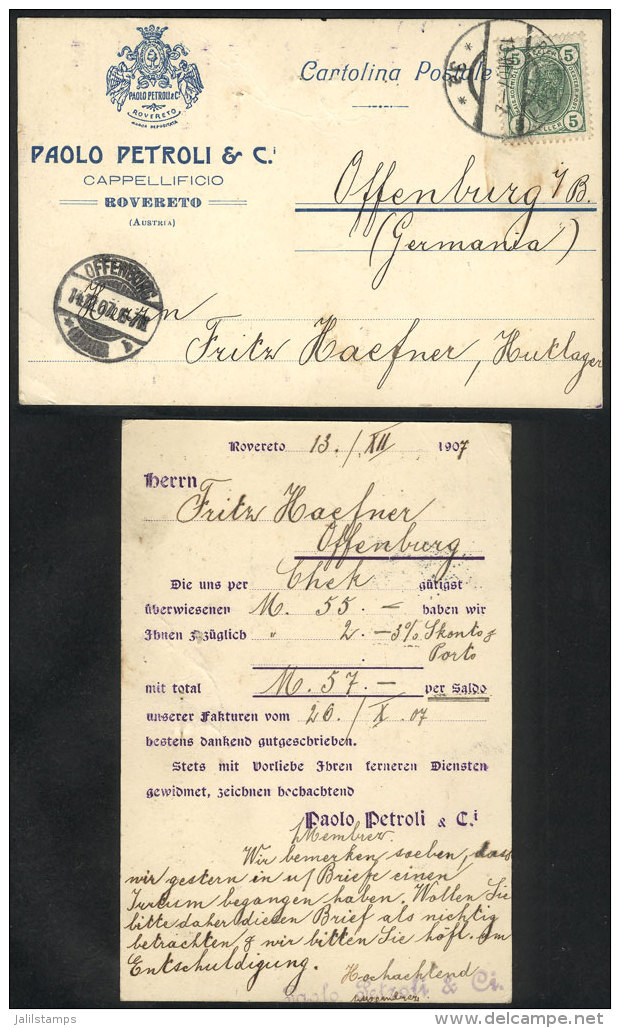 PAOLO PETROLI & C.
ROVERETO
MARCA DEPOSITATA
PAOLO PETROLI & C.i
CAPPELLIFICIO
ROVERETO
(AUSTRIA)
Cartolina Postale
5 5
5 5
32
Offenburg i/B.
(Germania)
OFFENBURG
14.12.07.
b
Herrn
Fritz Haefner, Hutlager
Rovereto 13./XII 1907
Herrn
Fritz Haefner
Offenburg
Die uns per Chek gütigst
überwiesenen M. 55.— haben wir
Ihnen zuzüglich " 2.— 3% Skonto &
Porto
mit total M. 57.— per Saldo
unserer Fakturen vom 26./X. 07
bestens dankend gutgeschrieben.
Stets mit Vorliebe Ihren ferneren Diensten
gewidmet, zeichnen hochachtend
Paolo Petroli & C.i
Wir bemerken soeben, dass
wir gestern in u/ Briefe einen
Irrtum begangen haben. Wollen Sie
bitte daher diesen Brief als nichtig
betrachten & wir bitten Sie höfl. um
Entschuldigung.
Hochachtend
Paolo Petroli & Ci.
jalilstamps
delcampe.net